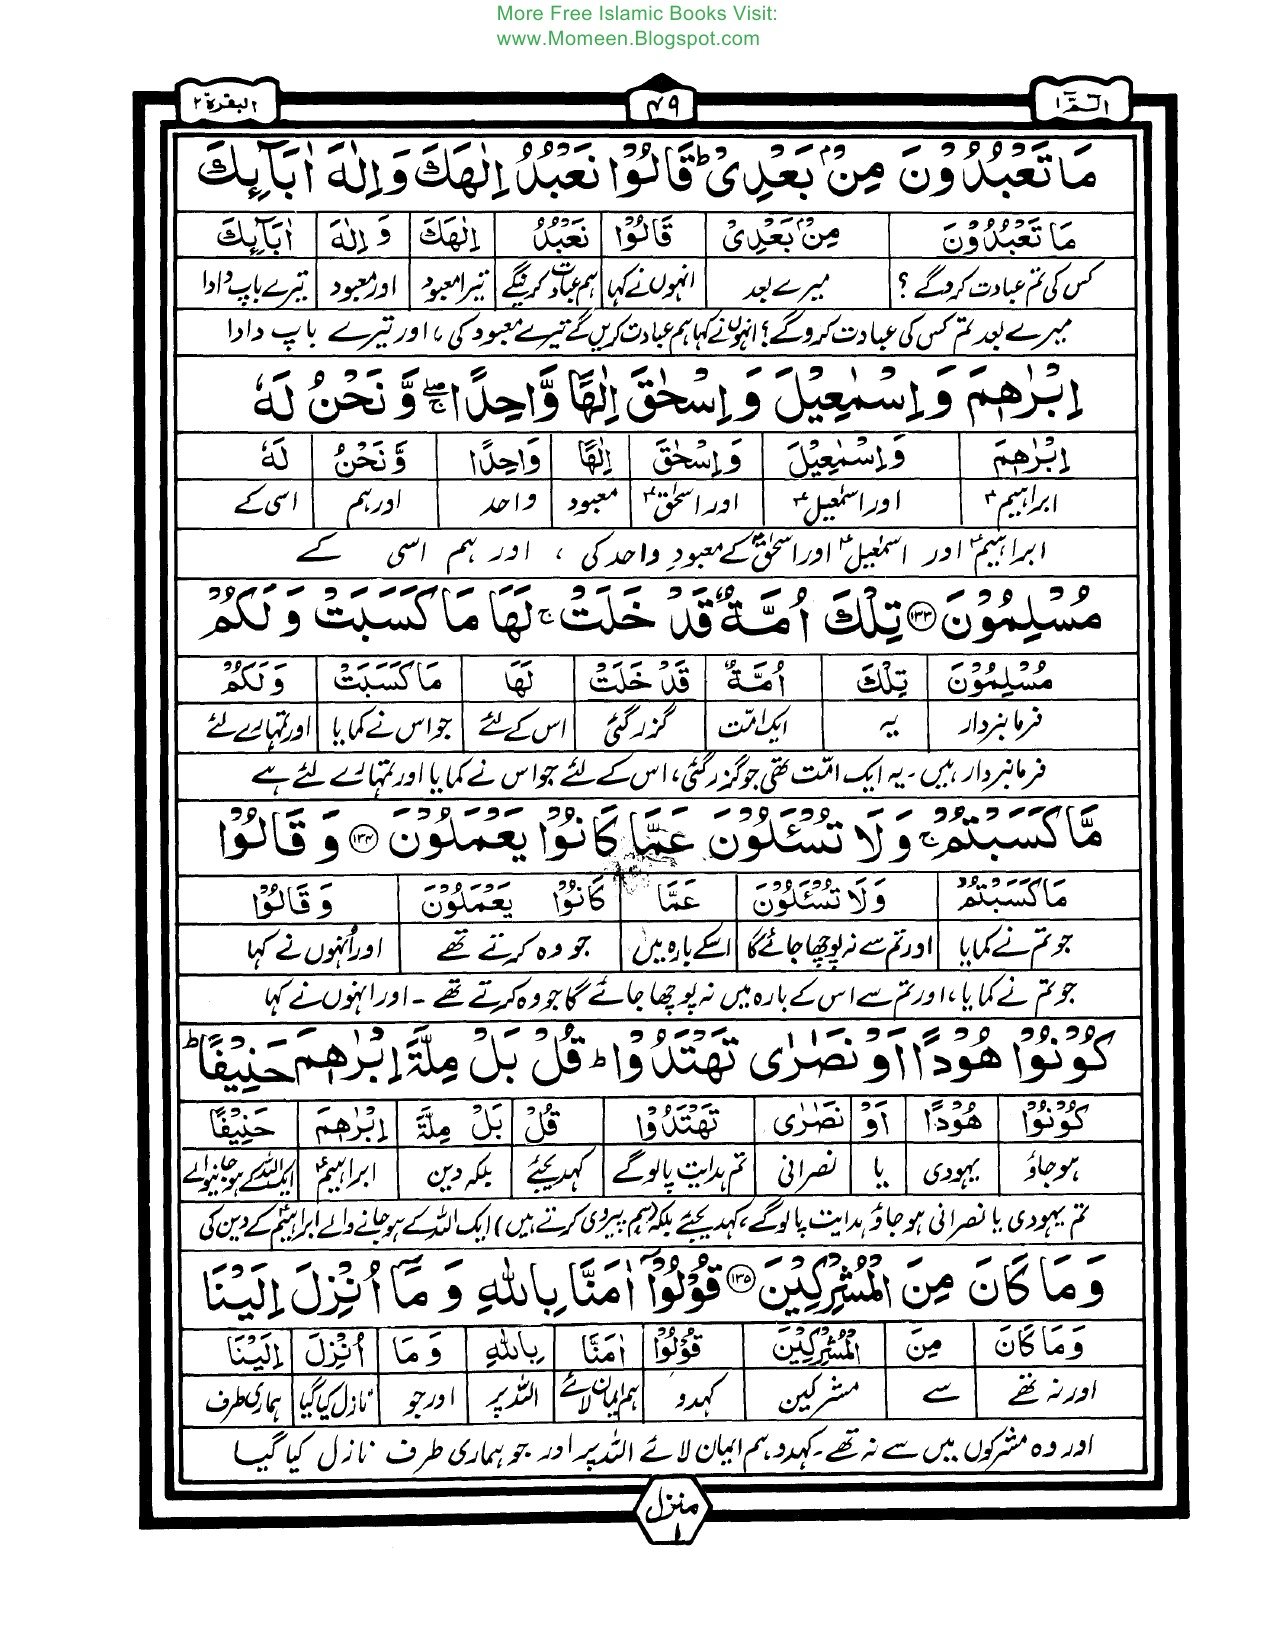 More Free Islamic Books Visit:
www.Momeen.Blogspot.com
الٓمّٓ ١ ٤٩ البقرة ٢
مَا تَعْبُدُوْنَ مِنْۢ بَعْدِیْ ؕ قَالُوْا نَعْبُدُ اِلٰهَكَ وَ اِلٰهَ اٰبَآىِٕكَ
مَا تَعْبُدُوْنَ مِنْۢ بَعْدِیْ قَالُوْا نَعْبُدُ اِلٰهَكَ وَ اِلٰهَ اٰبَآىِٕكَ
کس کی تم عبادت کروگے؟ میرے بعد انہوں نے کہا ہم عبادت کرینگے تیرا معبود اور معبود تیرے باپ دادا
میرے بعد تم کس کی عبادت کروگے؟ انہوں نے کہا ہم عبادت کریں گے تیرے معبود کی، اور تیرے باپ دادا
اِبْرٰهٖمَ وَ اِسْمٰعِیْلَ وَ اِسْحٰقَ اِلٰهًا وَّاحِدًا ۖۚ وَّ نَحْنُ لَهٗ
اِبْرٰهٖمَ وَ اِسْمٰعِیْلَ وَ اِسْحٰقَ اِلٰهًا وَاحِدًا وَّ نَحْنُ لَهٗ
ابراہیمؑ اور اسمٰعیلؑ اور اسحٰقؑ معبود واحد اور ہم اسی کے
ابراہیمؑ اور اسمٰعیلؑ اور اسحٰقؑ کے معبودِ واحد کی، اور ہم اسی کے
مُسْلِمُوْنَ ﴿۱۳۳﴾ تِلْكَ اُمَّةٌ قَدْ خَلَتْ ۚ لَهَا مَا كَسَبَتْ وَ لَكُمْ
مُسْلِمُوْنَ تِلْكَ اُمَّةٌ قَدْ خَلَتْ لَهَا مَا كَسَبَتْ وَ لَكُمْ
فرمانبردار یہ ایک امّت گزر گئی اس کے لئے جو اس نے کمایا اور تمہارے لئے
فرمانبردار ہیں۔ یہ ایک امّت تھی جو گزر گئی، اس کے لئے جو اس نے کمایا اور تمہارے لئے ہے
مَّا كَسَبْتُمْ ۚ وَ لَا تُسْـَٔلُوْنَ عَمَّا كَانُوْا یَعْمَلُوْنَ ﴿۱۳۴﴾ وَ قَالُوْا
مَا كَسَبْتُمْ وَ لَا تُسْـَٔلُوْنَ عَمَّا كَانُوْا یَعْمَلُوْنَ وَ قَالُوْا
جو تم نے کمایا اور تم سے نہ پوچھا جائے گا اسکے بارہ میں جو وہ کرتے تھے اور اُنہوں نے کہا
جو تم نے کمایا، اور تم سے اس کے بارہ میں نہ پوچھا جائے گا جو وہ کرتے تھے۔ اور انہوں نے کہا
كُوْنُوْا هُوْدًا اَوْ نَصٰرٰی تَهْتَدُوْا ؕ قُلْ بَلْ مِلَّةَ اِبْرٰهٖمَ حَنِیْفًا ؕ
كُوْنُوْا هُوْدًا اَوْ نَصٰرٰی تَهْتَدُوْا قُلْ بَلْ مِلَّةَ اِبْرٰهٖمَ حَنِیْفًا
ہو جاؤ یہودی یا نصرانی تم ہدایت پالوگے کہدیجئے بلکہ دین ابراہیمؑ ایک اللہ کے ہو جانیوالے
تم یہودی یا نصرانی ہو جاؤ ہدایت پالوگے، کہدیجئے بلکہ (ہم پیروی کرتے ہیں) ایک اللہ کے ہو جانے والے ابراہیمؑ کے دین کی
وَ مَا كَانَ مِنَ الْمُشْرِكِیْنَ ﴿۱۳۵﴾ قُوْلُوْۤا اٰمَنَّا بِاللّٰهِ وَ مَاۤ اُنْزِلَ اِلَیْنَا
وَ مَا كَانَ مِنَ الْمُشْرِكِیْنَ قُوْلُوْۤا اٰمَنَّا بِاللّٰهِ وَ مَا اُنْزِلَ اِلَیْنَا
اور نہ تھے سے مشرکین کہدو ہم ایمان لائے اللہ پر اور جو نازل کیا گیا ہماری طرف
اور وہ مشرکوں میں سے نہ تھے۔ کہدو، ہم ایمان لائے اللہ پر اور جو ہماری طرف نازل کیا گیا
منزل ١